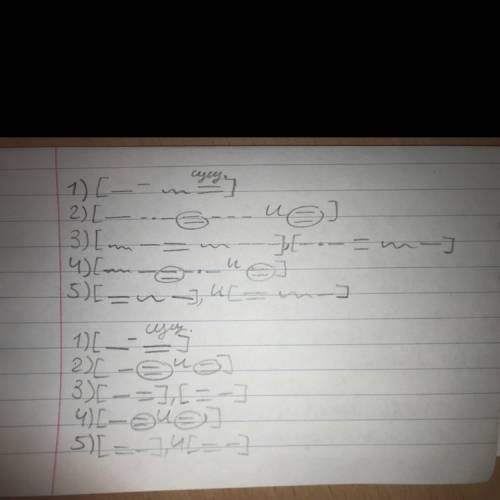 сущ.
1) [— – ~ =]
2) [— -·- = --- и =]
3) [~ — = ~ —], [— · — = ~ —]
4) [~ — = — · — и =]
5) [= ~ —], и [= ~ —]
сущ.
1) [— – =]
2) [— = и =]
3) [— =], [= —]
4) [— = и =]
5) [= —], и [= —]